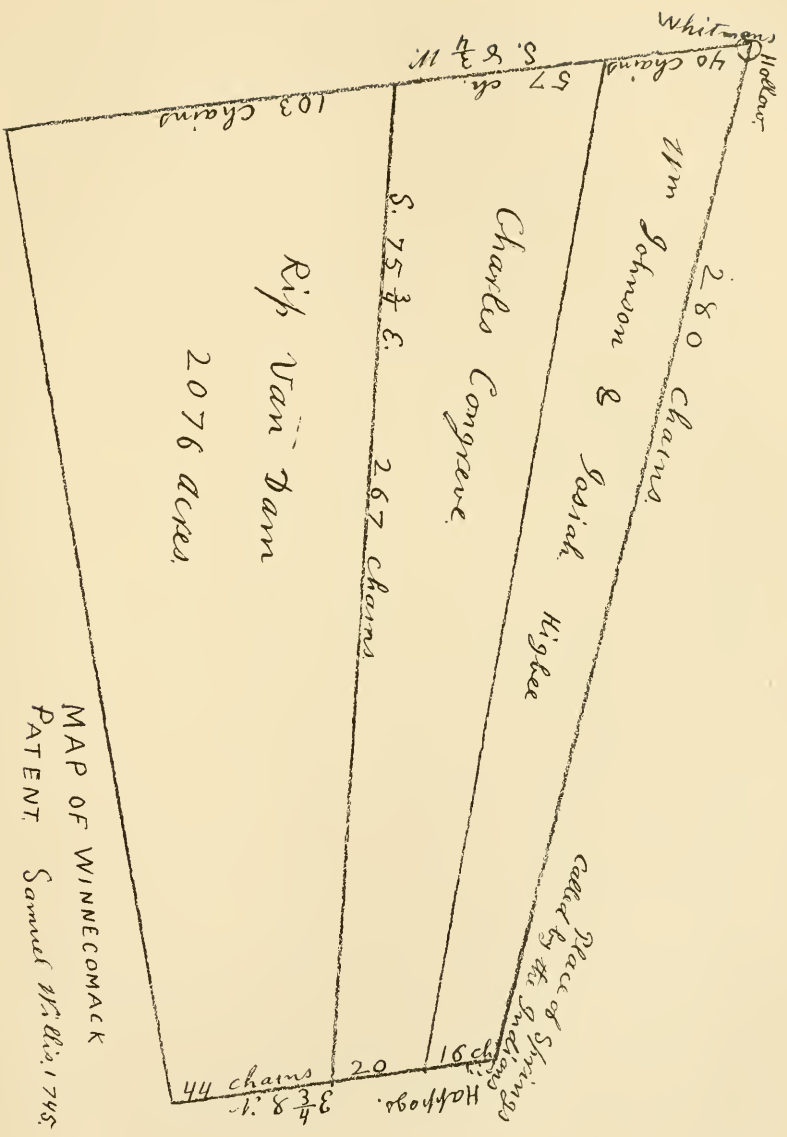 Whitmans
Hollow.
40 chains
57
ch.
S. 8 3/4 W.
103 chains
280 chains.
Wm Johnson & Josiah Higbee
Charles Congreve
S. 75 3/4 E. 267 chains.
Rip Van Dam
2076 acres.
Place of Springs
Called by the Indians
Happogs.
16 ch
20
44 chains
MAP OF WINNECOMACK
PATENT. Samuel Willis, 1745.